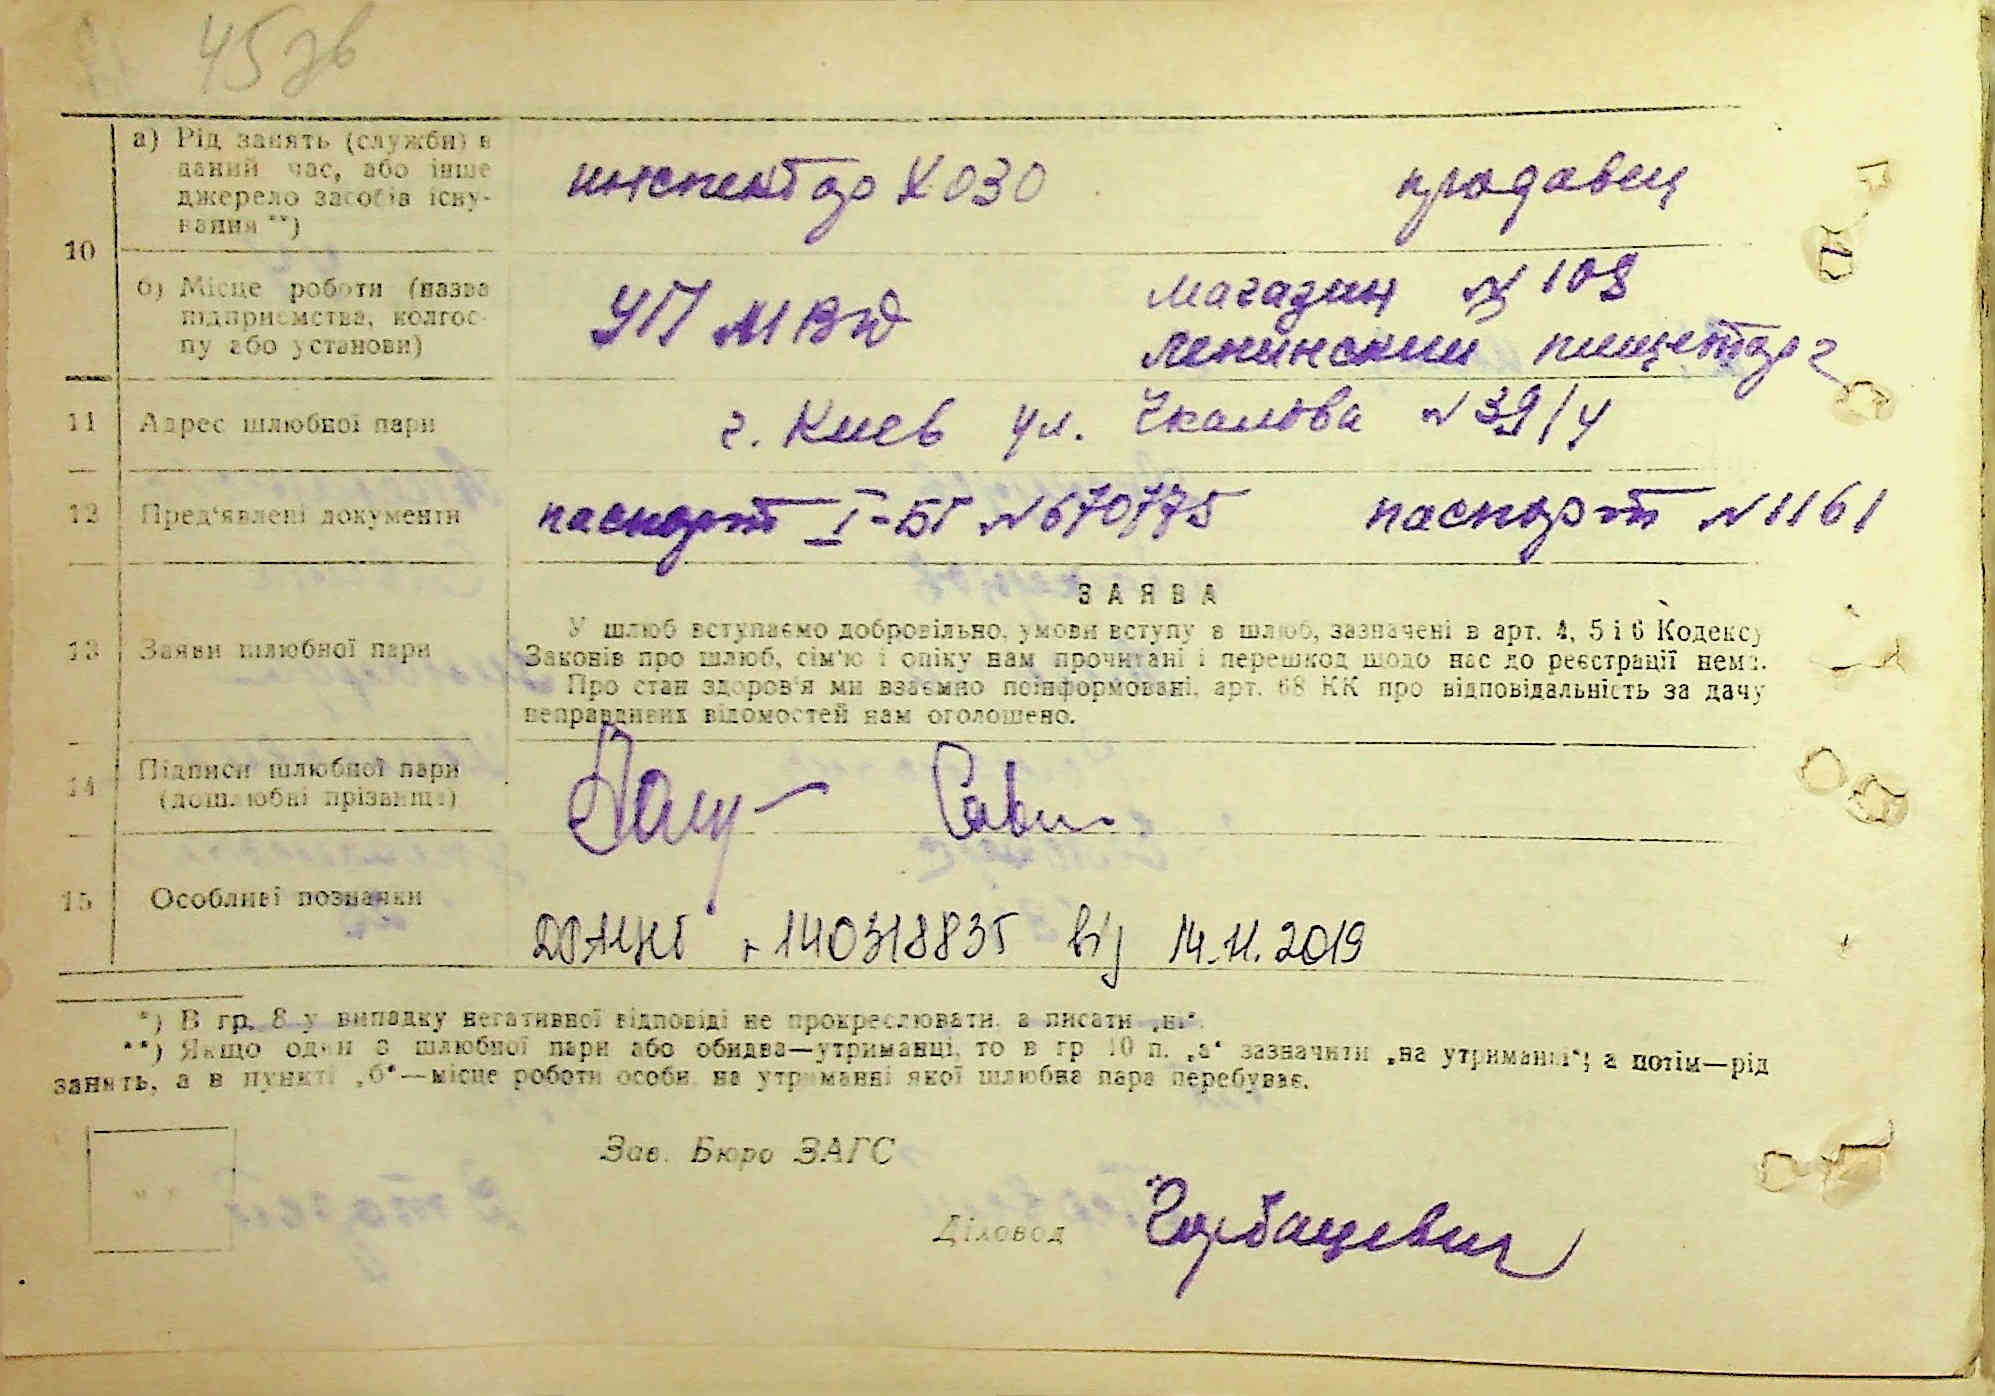 45 зв
а) Рід занять (службн) в
даний час, або інше
джерело засобів існу-
вання **)
инспектор ХОЗО
продавец
10
б) Місце роботи (назва
підприємства, колгос-
пу або установи)
УП МВД
магазин № 108
Ленинский пищеторг
11 Адрес шлюбної пари
г. Киев ул. Чкалова № 39/4
12 Пред'явлені документи
паспорт I-БГ № 670775
паспорт № 1161
ЗАЯВА
13 Заяви шлюбної пари
У шлюб вступаємо добровільно, умови вступу в шлюб, зазначені в арт. 4, 5 і 6 Кодексу
Законів про шлюб, сім'ю і опіку нам прочитані і перешкод щодо нас до реєстрації нема.
Про стан здоров'я ми взаємно поінформовані, арт. 68 КК про відповідальність за дачу
неправдивих відомостей нам оголошено.
14 Підписи шлюбної пари
(дошлюбні прізвища)
15 Особливі позначки
140318835 від 14.11.2019
*) В гр. 8 у випадку негативної відповіді не прокреслювати, а писати „ні“.
**) Якщо один з шлюбної пари або обидва—утриманці, то в гр 10 п. „а“ зазначити „на утриманні“; а потім—рід
занять, а в пункті „б“—місце роботи особи, на утриманні якої шлюбна пара перебуває.
Зав. Бюро ЗАГС
Діловод Горбацевич